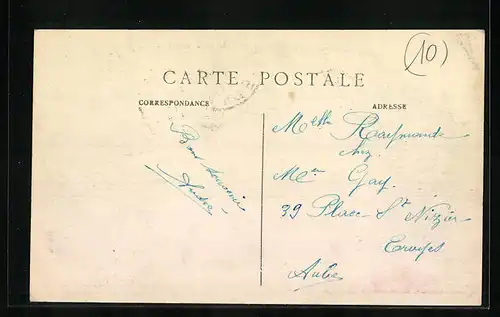 (10)
CARTE POSTALE
CORRESPONDANCE
ADRESSE
Bon souvenir
Andre
Melle Raymonde
chez
Gay.
39 Place St Nizier
Troyes
Aube